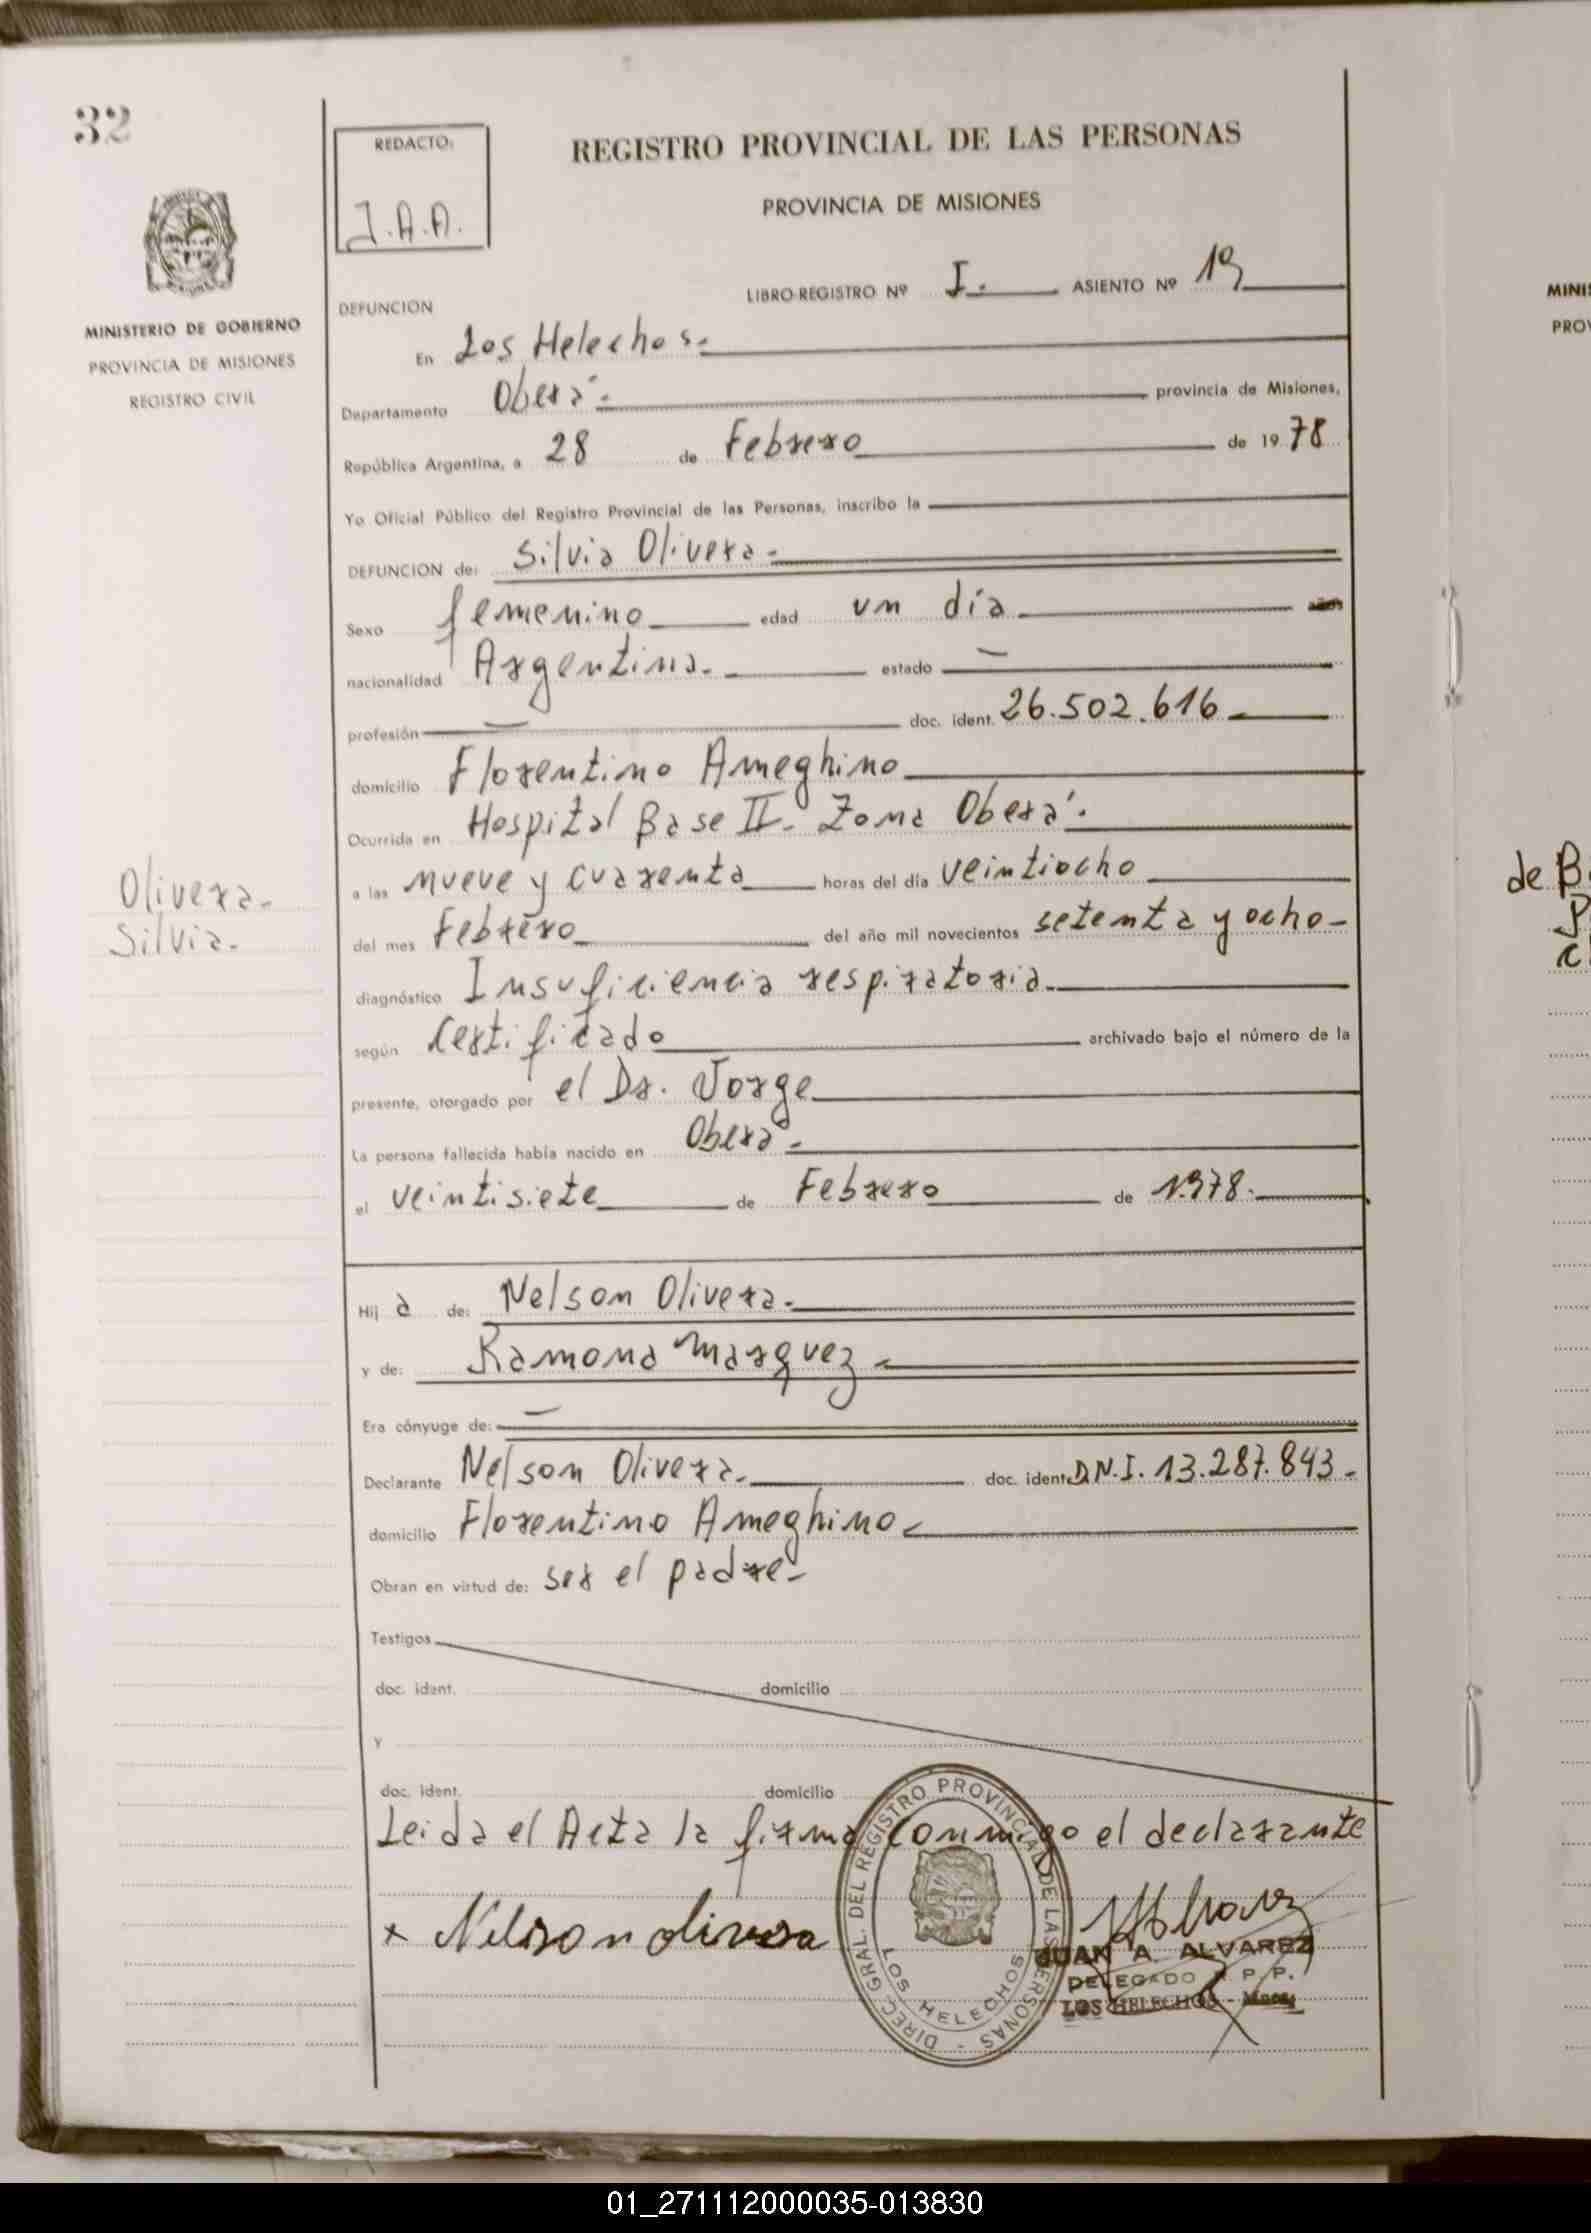 32
REDACTO:
J.A.A.
REGISTRO PROVINCIAL DE LAS PERSONAS
PROVINCIA DE MISIONES
MINISTERIO DE GOBIERNO
PROVINCIA DE MISIONES
REGISTRO CIVIL
LIBRO-REGISTRO Nº I. ASIENTO Nº 19
DEFUNCION
En Los Helechos.
Departamento Oberá. provincia de Misiones,
República Argentina, a 28 de Febrero de 1978
Yo Oficial Público del Registro Provincial de las Personas, inscribo la
DEFUNCION de: Silvia Olivera.
Sexo femenino edad un día años
nacionalidad Argentina. estado —
profesión — doc. ident. 26.502.616
domicilio Florentino Ameghino
Ocurrida en Hospital Base II. Zona Oberá.
a las nueve y cuarenta horas del día veintiocho
del mes Febrero del año mil novecientos setenta y ocho-
diagnóstico Insuficiencia respiratoria.
según Certificado archivado bajo el número de la
presente, otorgado por el Dr. Jorge
La persona fallecida había nacido en Oberá.
el veintisiete de Febrero de 1978.
Olivera.
Silvia.
Hij a de: Nelson Olivera.
y de: Ramona Marquez
Era cónyuge de: —
Declarante Nelson Olivera. doc. ident. D.N.I. 13.287.843-
domicilio Florentino Ameghino
Obran en virtud de: ser el padre-
Testigos
doc. ident. domicilio
y
doc. ident. domicilio
Leida el Acta la firma conmigo el declarante
x Nelson olivera
DIREC. GRAL. DEL REGISTRO PROVINCIAL DE LAS PERSONAS -
LOS HELECHOS
JUAN A. ALVAREZ
DELEGADO R. P. P.
LOS HELECHOS - Mnes.
MINIS
PROV
de B
01_271112000035-013830